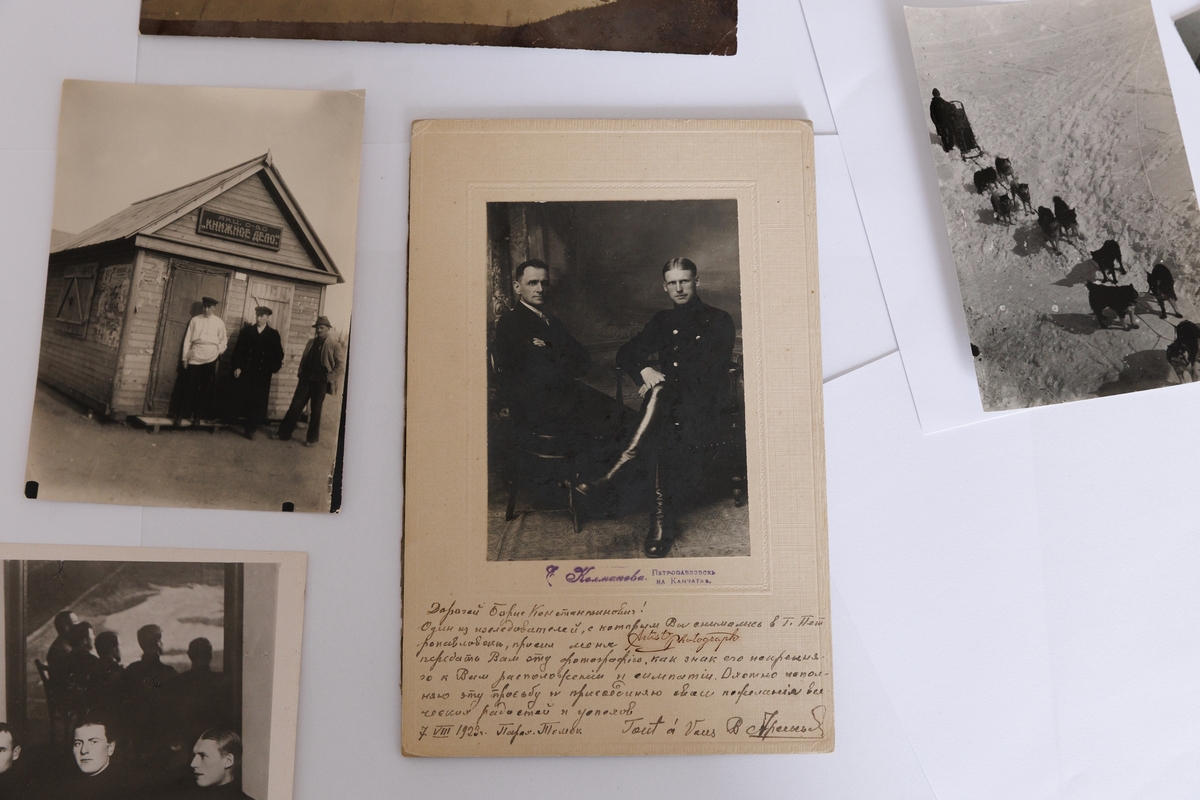 АКЦ. О-ВО
„КНИЖНОЕ ДЕЛО"
Колмакова. Петропавловскъ
на Камчаткѣ.
Дорогой Борис Константинович!
Один из изследователей, с которым Вы снимались в г. Пет
ропавловске, просил меня (Artist Photograph
передать Вам эту фотографію, как знак его искрення-
го к Вам расположения и симпатіи. Охотно испол-
няю эту просьбу и присоединяю свои пожелания все
ческих радостей и успехов
7 VIII 1923г. Парох. Томск Tout à Vous В Арсеньев